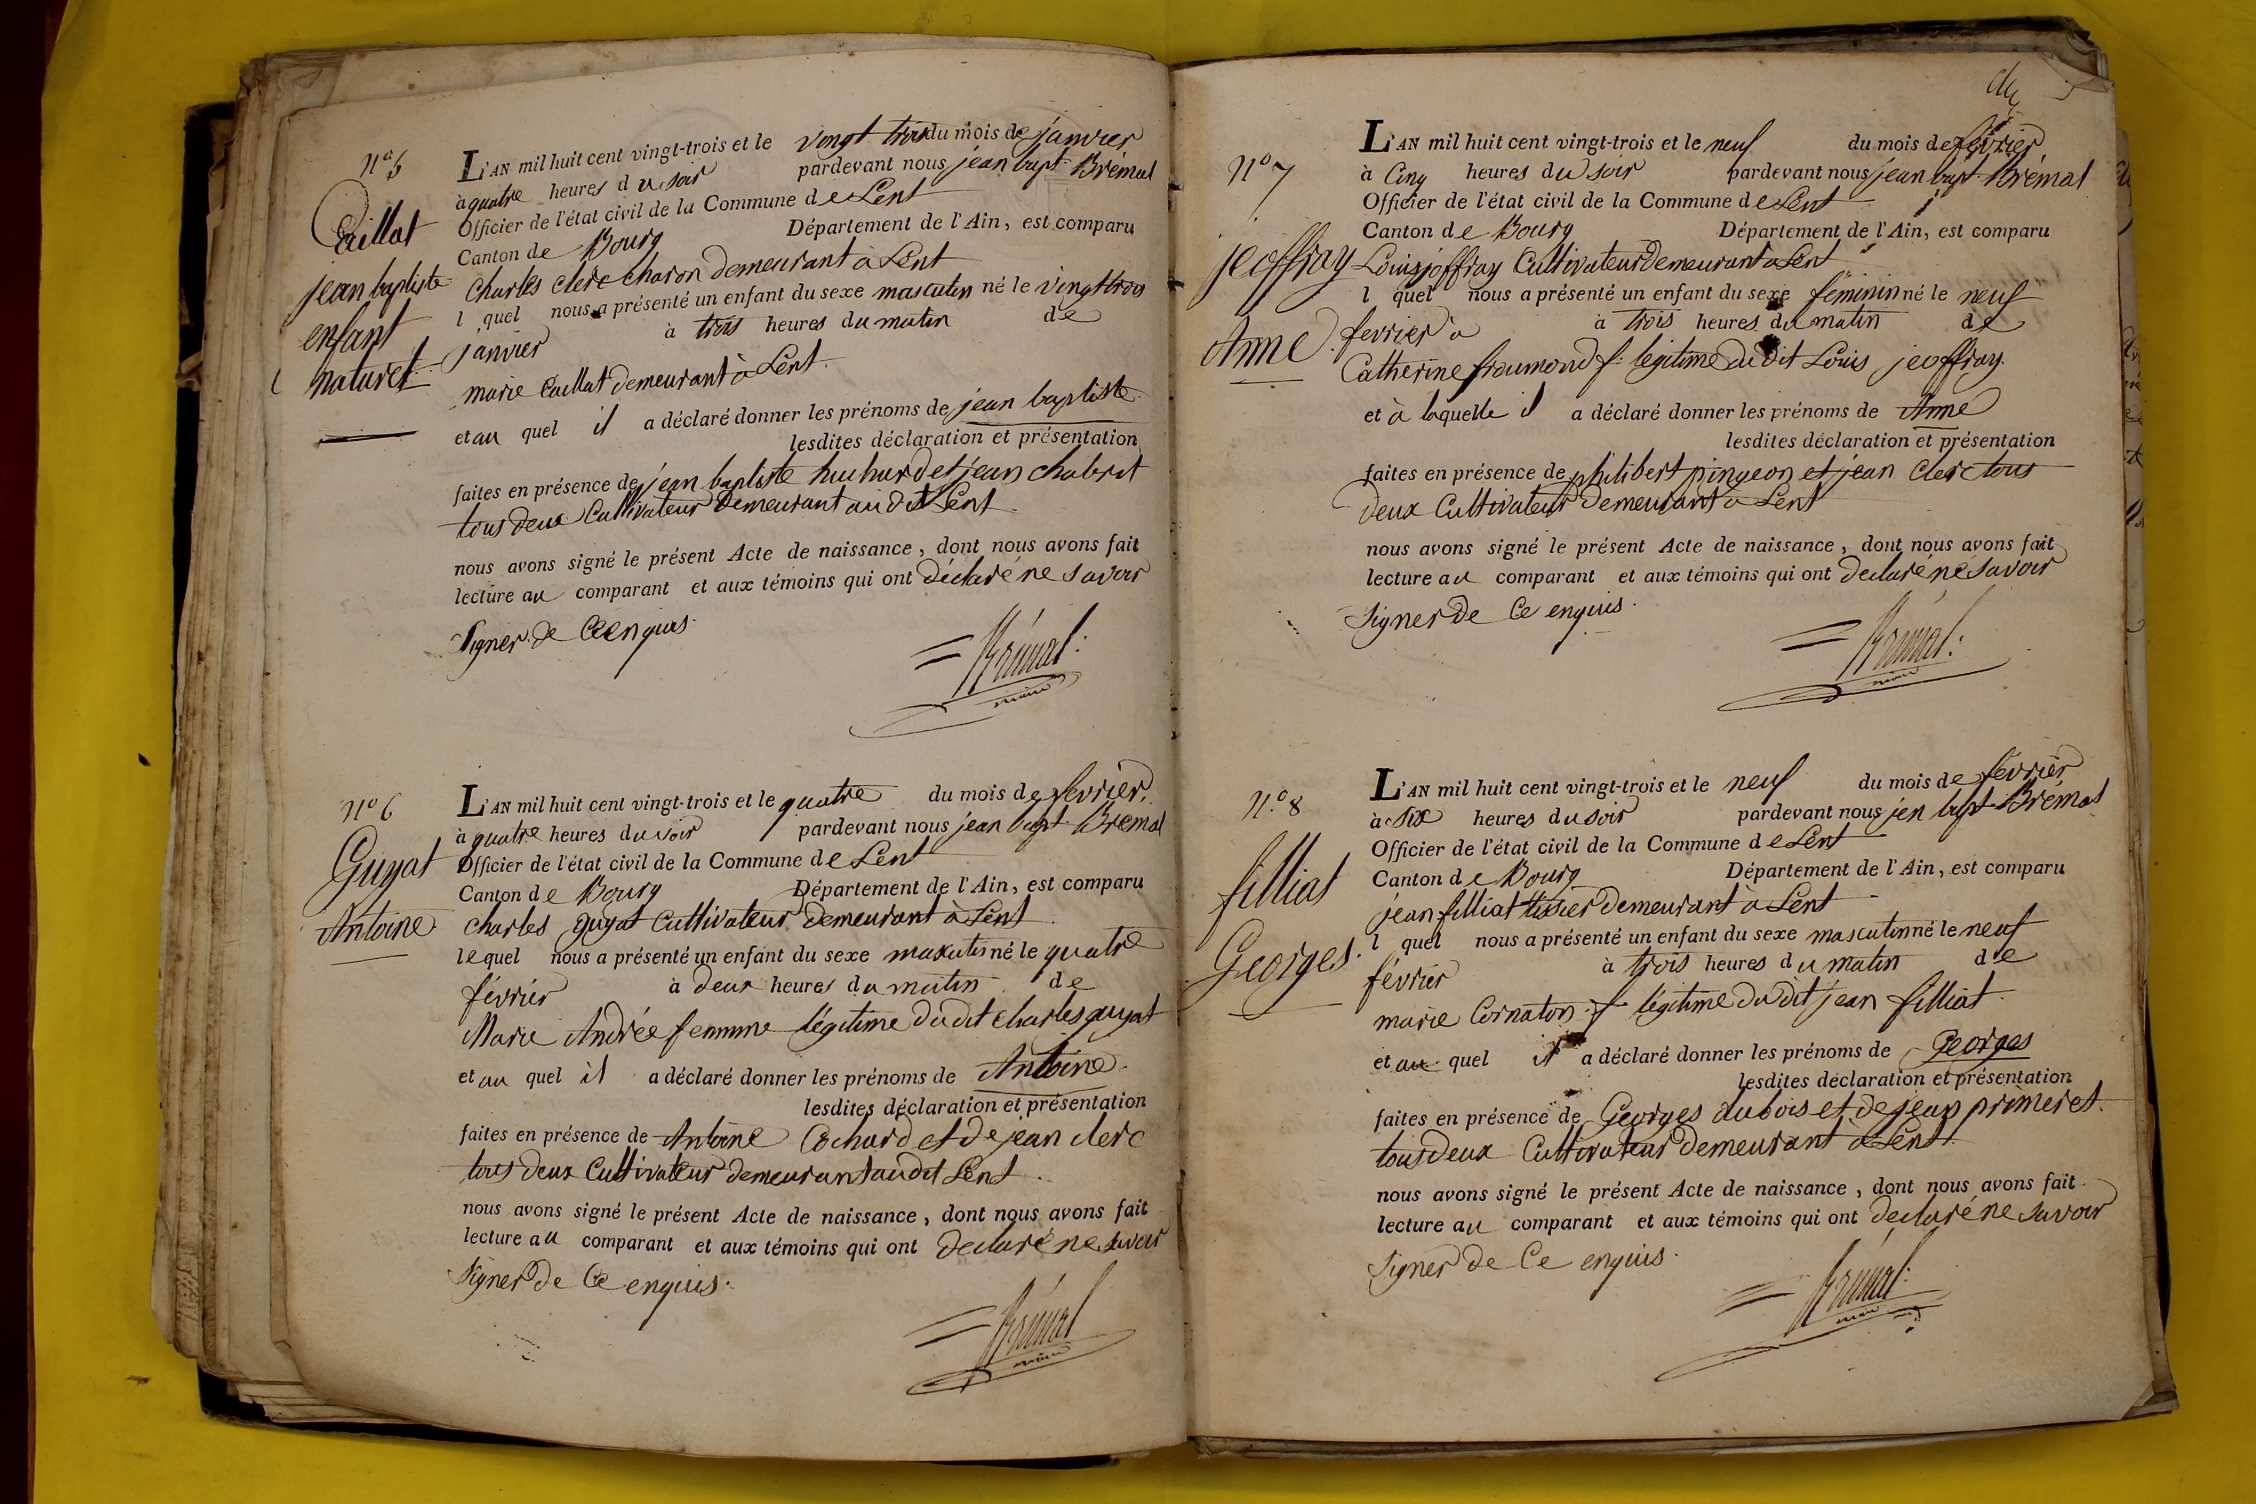 N.o 5
Caillat
jean baptiste
enfant
naturel
L'AN mil huit cent vingt-trois et le vingt trois du mois de janvier
à quatre heures du soir pardevant nous jean bapt. Brémal
Officier de l'état civil de la Commune de Lent
Canton de Bourg Département de l'Ain, est comparu
Charles clerc charon demeurant à Lent
l quel nous a présenté un enfant du sexe masculin né le vingt trois
janvier à trois heures du matin de
marie Caillat demeurant à Lent.
et au quel il a déclaré donner les prénoms de jean baptiste
lesdites déclaration et présentation
faites en présence de jean baptiste huchard et jean chabrit
tous deux Cultivateur demeurant au dit Lent
nous avons signé le présent Acte de naissance, dont nous avons fait
lecture au comparant et aux témoins qui ont déclaré ne savoir
signer de Ce enquis.
Brémal
maire
N.o 6
Guyat
Antoine
L'AN mil huit cent vingt-trois et le quatre du mois de fevrier.
à quatre heures du soir pardevant nous jean bapt. Bremal
Officier de l'état civil de la Commune de Lent
Canton de Bourg Département de l'Ain, est comparu
charles guyat Cultivateur demeurant à Lent
lequel nous a présenté un enfant du sexe masculin né le quatre
février à deux heures du matin de
Marie Andrée femme légitime du dit charles guyat
et au quel il a déclaré donner les prénoms de Antoine.
lesdites déclaration et présentation
faites en présence de Antoine Cochard et de jean clerc
tous deux Cultivateur demeurant audit Lent.
nous avons signé le présent Acte de naissance, dont nous avons fait
lecture au comparant et aux témoins qui ont declaré ne savoir
signer de Ce enquis.
Brémal
maire
N.o 7
jeoffray
Anne
L'AN mil huit cent vingt-trois et le neuf du mois de février
à Cinq heures du soir pardevant nous jean bapt. Brémal
Officier de l'état civil de la Commune de Lent
Canton de Bourg Département de l'Ain, est comparu
Louis joffray Cultivateur demeurant à Lent
l quel nous a présenté un enfant du sexe féminin né le neuf
fevrier à à trois heures du matin de
Catherine fraumond f. legitime du dit Louis jeoffray.
et à laquelle il a déclaré donner les prénoms de Anne
lesdites déclaration et présentation
faites en présence de philibert pingeon et jean Clerc tous
deux Cultivateur demeurant à Lent
nous avons signé le présent Acte de naissance, dont nous avons fait
lecture au comparant et aux témoins qui ont declaré ne savoir
signer de Ce enquis.
Brémal.
maire
N.o 8
filliat
Georges.
L'AN mil huit cent vingt-trois et le neuf du mois de fevrier
à six heures du soir pardevant nous jen bapt. Brémal
Officier de l'état civil de la Commune de Lent
Canton de Bourg Département de l'Ain, est comparu
jean filliat tissier demeurant à Lent
l quel nous a présenté un enfant du sexe masculin né le neuf
février à trois heures du matin de
marie Cornaton f. légitime du dit jean filliat.
et au quel il a déclaré donner les prénoms de Georges
lesdites déclaration et présentation
faites en présence de Georges dubois et de jean primeret.
tous deux Cultivateur demeurant à Lent.
nous avons signé le présent Acte de naissance, dont nous avons fait
lecture au comparant et aux témoins qui ont declaré ne savoir
signer de Ce enquis.
Brémal.
maire